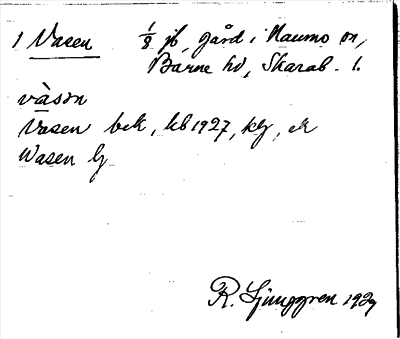 1 Vasen 1/8 jb, gård i Naumo sn,
Barne hd, Skarab. l.
vàsən
Vasen bek, kb 1927,
Wasen
R. Ljunggren 1927